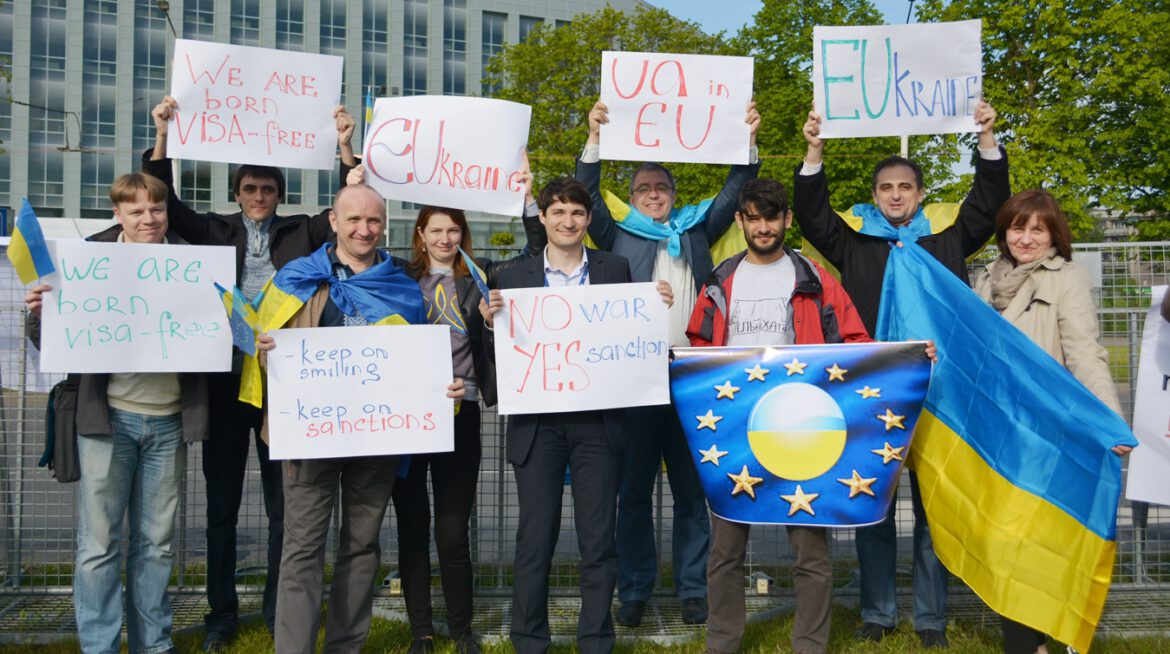 WE ARE
born
VISA-FREE
EUkraine
UA in
EU
EUKRAINE
WE ARE
born
visa-free
- keep on
smiling
- keep on
sanctions
NO war
YES sanction